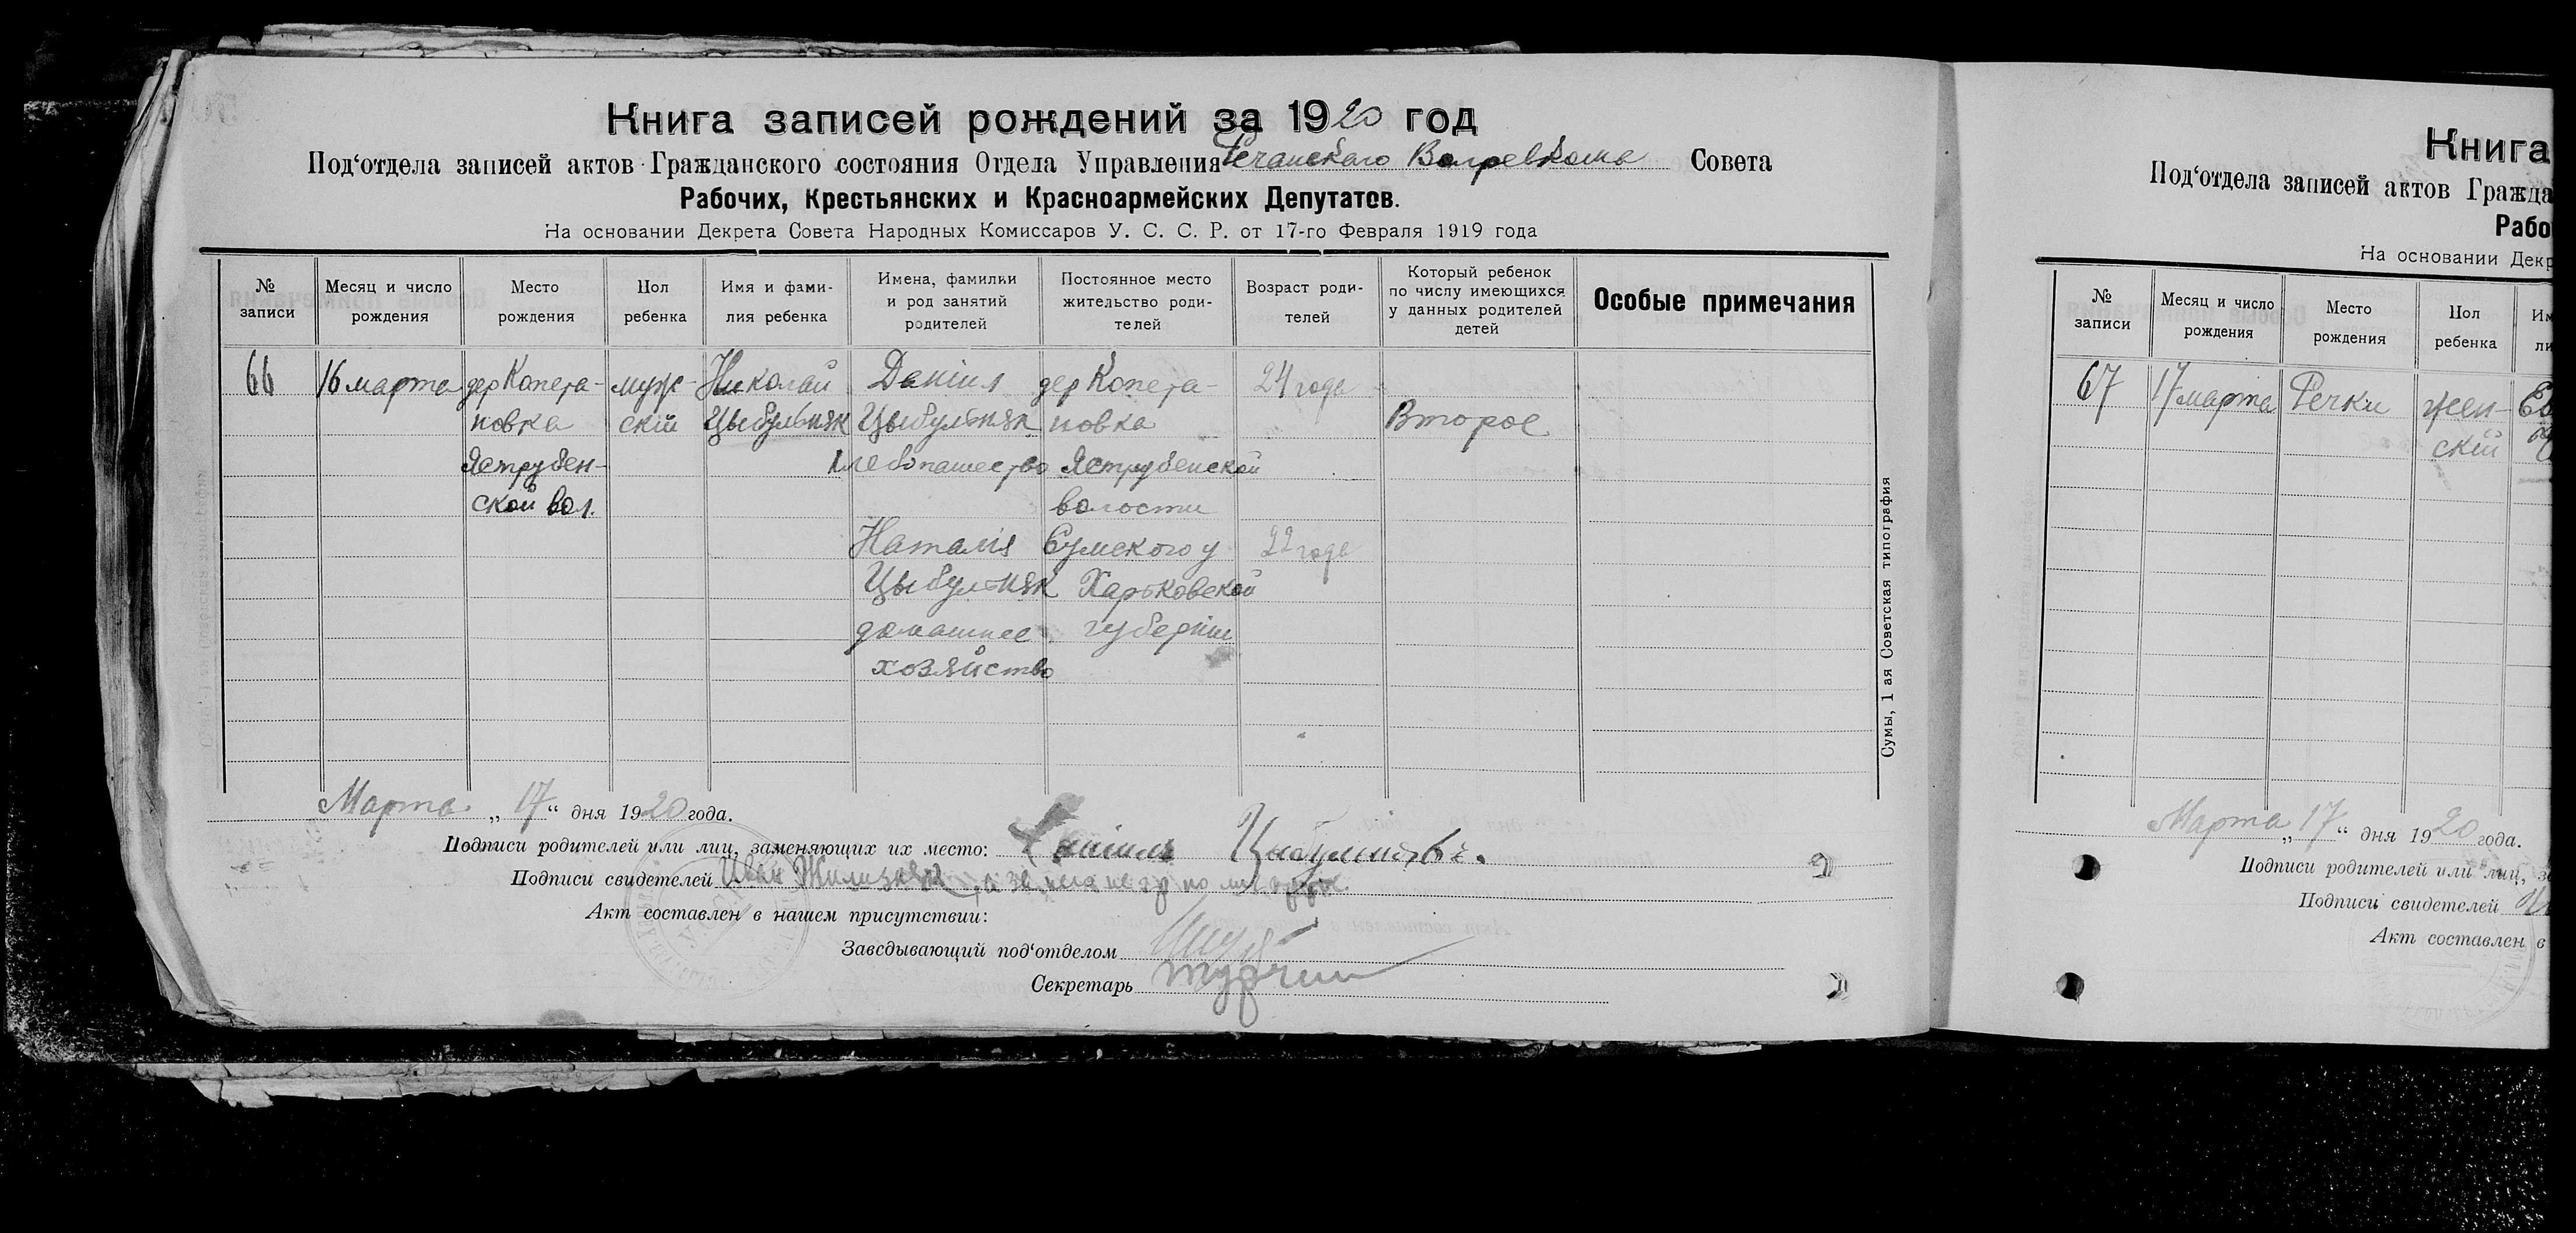 Книга записей рождений за 1920 год
Под‘отдела записей актов Гражданского состояния Отдела Управления Речанского Волревкома Совета
Рабочих, Крестьянских и Красноармейских Депутатов.
На основании Декрета Совета Народных Комиссаров У. С. С. Р. от 17-го Февраля 1919 года
№ записи
Месяц и число рождения
Место рождения
Пол ребенка
Имя и фами-
лия ребенка
Имена, фамилии
и род занятий
родителей
Постоянное место
жительство роди-
телей
Возраст роди-
телей
Который ребенок
по числу имеющихся
у данных родителей
детей
Особые примечания
66
16 марта
дер Копета-
новка
Яструбен-
ской вол.
муж-
скій
Николай
Цыбульняк
Даніил
Цыбульняк
хлебопашество
Наталія
Цыбульняк
домашнее
хозяйство
дер Копета-
новка
Яструбенской
волости
Сумского у
Харьковской
губерніи
24 года
22 года
Второе
Сумы, 1 ая Советская типография
Марта „ 17 “ дня 1920 года.
Подписи родителей или лиц, заменяющих их место:
Подписи свидетелей Иван
Акт составлен в нашем присутствии:
Заведывающий под‘отделом
Секретарь
Книга
Под‘отдела записей актов Гражда
Рабо
На основании Декр
№ записи
Месяц и число
рождения
Место
рождения
Пол
ребенка
Им
ли
67
17 марта
Речки
жен-
скій
Марта „ 17 “ дня 1920 года.
Подписи родителей или лиц, за
Подписи свидетелей
Акт составлен в